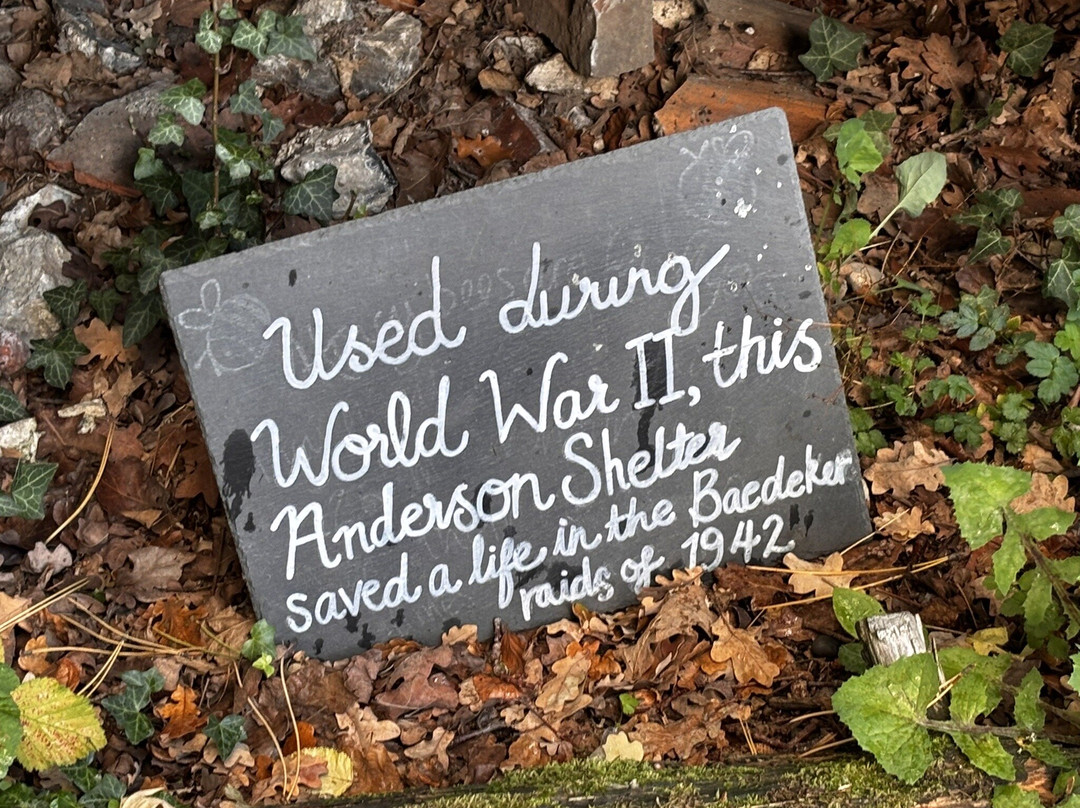 Used during
World War II, this
Anderson Shelter
saved a life in the Baedeker
raids of 1942